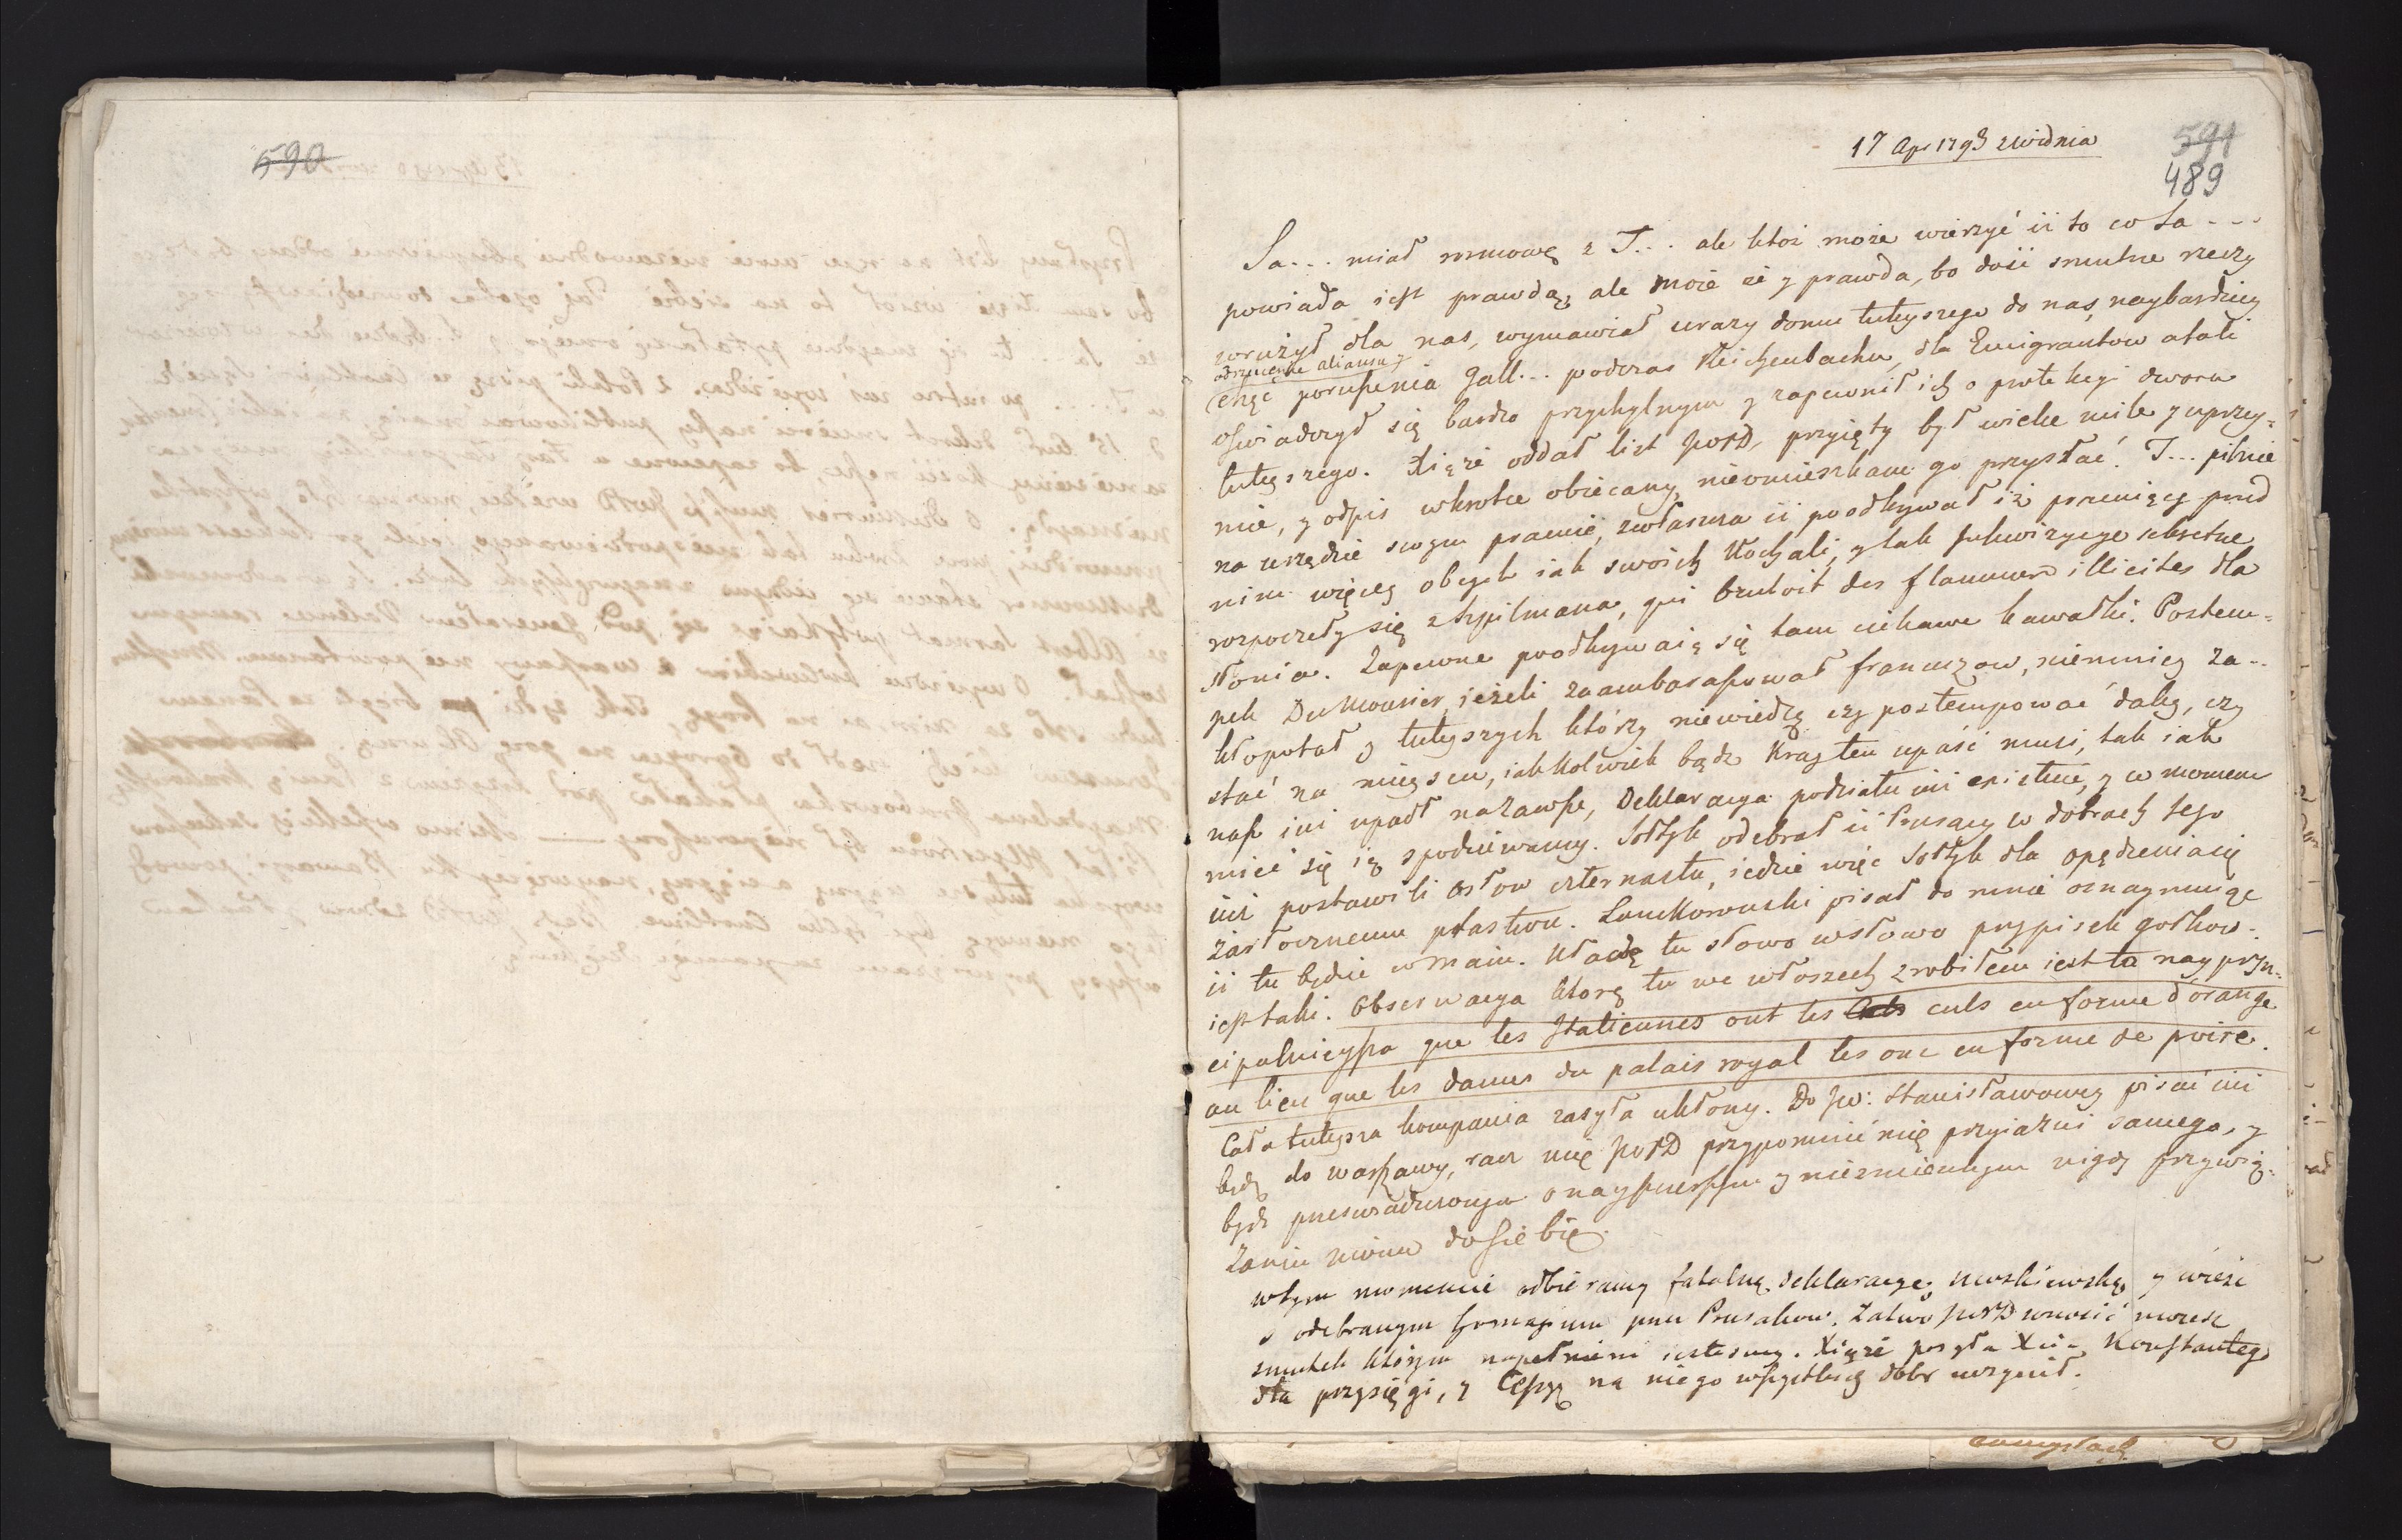 590
17 Apr 1793 z Widnia
591
489
Sa... miał rozmowę z T... ale ktoż może wierzyć iż to co Sa...
powiada iest prawdą, ale może że y prawda, bo dość smutne rzeczy
wrużył dla nas, wymawiał urazy domu tuteyszego do nas, naybardziey
odrzucenie aliansu y
chęć poruszenia Gall... podczas Reichenbachu, dla Emigrantow atoli
oświadczył się bardzo przychylnym y zapewnił ich o protekcyi dworu
tuteyszego. Xiąże oddał list JWPD, przyięty był wielce mile y uprzey-
mie, y odpis wkrotce obiecany, nieomieszkam go przysłać. T... pilnie
na urzędzie swym pracuie, zwłaszcza iż poodkrywał iż przeniący przed
nim więcey obcych iak swoich kochali, y tak inkwizycye sekretne
rozpoczęły się z Szpilmana, qui brutoit des flammes illicites dla
słonia. Zapewne poodkrywaią się tam ciekawe kawałki. Postem-
pek Dukmourier, ieżeli zaambarasował francuzow, niemniey za-
kłopotał y tuteyszych ktorzy niewiedzą czy postempować daley, czy
stać na mieyscu, iakkolwiek bądz Kray ten upaść musi, tak iak
nasz iuż upadł nazawsze, Deklaracya podziału iuż existuie, y co moment
mieć się iey spodziewamy. Sołtyk odebrał iż Prusacy w dobrach iego
iuż postawili osłow czternastu, iedzie więc Sołtyk dla opędzenia się
żarłocznemu ptastwu. Lanckoronski pisał do mnie oznaymuiąc
iż tu będzie w maiu. Kładę tu słowo w słowo przypisek gotkow-
iest taki. Obserwacya ktorą tu we włoszech zrobiłem iest ta nayprzyn-
cipalnieysza que les Italiennes ont les culs en forme d'orange
au lieu que les dames du palais royal les ont en forme de poire.
Cała tuteysza kompania zasyła ukłony. Do JW: Stanisławowey pisać iuż
będę do warszawy, racz mię JWPD przypomnieć mię przyiaźni samego, y
bydź przeswiadczonym o nayszczerszym y niezmiennym nigdy przywią-
zaniu moim do siebie.
w tym momencie odbieramy fatalną deklaracyę moskiewską y wieść
o odebranym homagium przez Prusakow. Łatwo JWPD wnosić możesz
smutek ktorym napełnieni iestesmy. Xiąże posyła Xcia Konstantego
dla przysięgi, y Cessyę na niego wszystkich dobr uczynił.